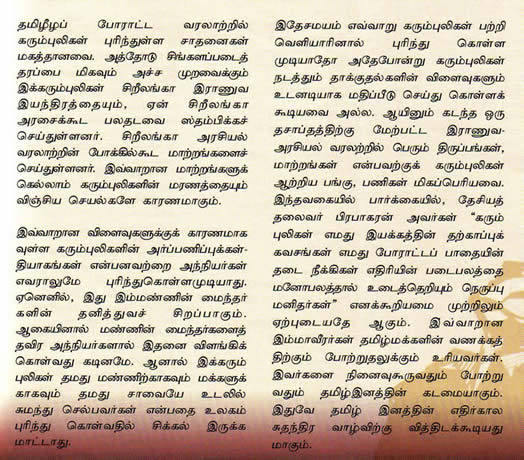 தமிழீழப் போராட்ட வரலாற்றில்
கரும்புலிகள் புரிந்துள்ள சாதனைகள்
மகத்தானவை. அத்தோடு சிங்களப்படைத்
தரப்பை மிகவும் அச்ச முறவைக்கும்
இக்கரும்புலிகள் சிறீலங்கா இராணுவ
இயந்திரத்தையும், ஏன் சிறீலங்கா
அரசைக்கூட பலதடவை ஸ்தம்பிக்கச்
செய்துள்ளனர். சிறீலங்கா அரசியல்
வரலாற்றின் போக்கில்கூட மாற்றங்களைச்
செய்துள்ளனர். இவ்வாறான மாற்றங்களுக்
கெல்லாம் கரும்புலிகளின் மரணத்தையும்
விஞ்சிய செயல்களே காரணமாகும்.
இவ்வாறான விளைவுகளுக்குக் காரணமாக
வுள்ள கரும்புலிகளின் அர்ப்பணிப்புக்கள்-
தியாகங்கள் என்பனவற்றை அந்நியர்கள்
எவராலுமே புரிந்துகொள்ளமுடியாது.
ஏனெனில், இது இம்மண்ணின் மைந்தர்
களின் தனித்துவச் சிறப்பாகும்.
ஆகையினால் மண்ணின் மைந்தர்களைத்
தவிர அந்நியர்களால் இதனை விளங்கிக்
கொள்வது கடினமே. ஆனால் இக்கரும்
புலிகள் தமது மண்ணிற்காகவும் மக்களுக்
காகவும் தமது சாவையே உடலில்
சுமந்து செல்பவர்கள் என்பதை உலகம்
புரிந்து கொள்வதில் சிக்கல் இருக்க
மாட்டாது.
இதேசமயம் எவ்வாறு கரும்புலிகள் பற்றி
வெளியாரினால் புரிந்து கொள்ள
முடியாதோ அதேபோன்று கரும்புலிகள்
நடத்தும் தாக்குதல்களின் விளைவுகளும்
உடனடியாக மதிப்பீடு செய்து கொள்ளக்
கூடியவை அல்ல. ஆயினும் கடந்த ஒரு
தசாப்தத்திற்கு மேற்பட்ட இராணுவ-
அரசியல் வரலற்றில் பெரும் திருப்பங்கள்,
மாற்றங்கள் என்பவற்குக் கரும்புலிகள்
ஆற்றிய பங்கு, பணிகள் மிகப்பெரியவை.
இந்தவகையில் பார்க்கையில், தேசியத்
தலைவர் பிரபாகரன் அவர்கள் “கரும்
புலிகள் எமது இயக்கத்தின் தற்காப்புக்
கவசங்கள் எமது போராட்டப் பாதையின்
தடை நீக்கிகள் எதிரியின் படைபலத்தை
மனோபலத்தால் உடைத்தெறியும் நெருப்பு
மனிதர்கள்” எனக்கூறியமை முற்றிலும்
ஏற்புடையதே ஆகும். இவ்வாறான
இம்மாவீரர்கள் தமிழ்மக்களின் வணக்கத்
திற்கும் போற்றுதலுக்கும் உரியவர்கள்.
இவர்களை நினைவுகூருவதும் போற்று
வதும் தமிழ்இனத்தின் கடமையாகும்.
இதுவே தமிழ் இனத்தின் எதிர்கால
சுதந்திர வாழ்விற்கு வித்திடக்கூடியது
மாகும்.